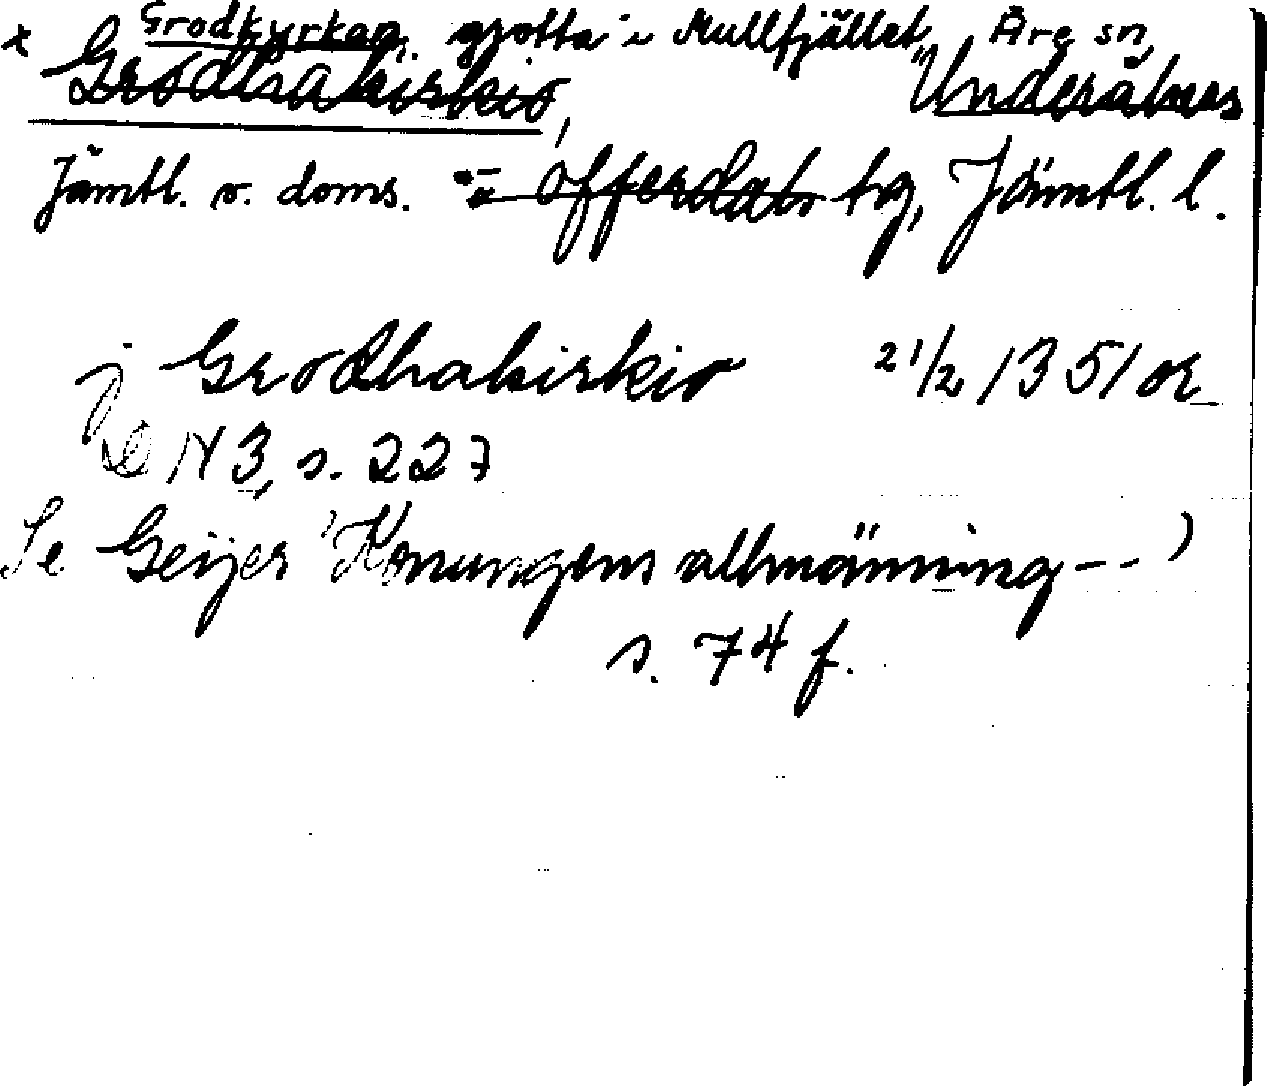 x Grodkyrkan, grotta i Mullfjället, Åre sn,
Grodhakirkio, Undersåkers
Jämtl. v. doms. Offerdals tg, Jämtl. l.
j Grodhakirkio 21/2 1351 or
DN 3, s. 227
Se Geijer 'Konungens allmänning - - )
s. 74 f.